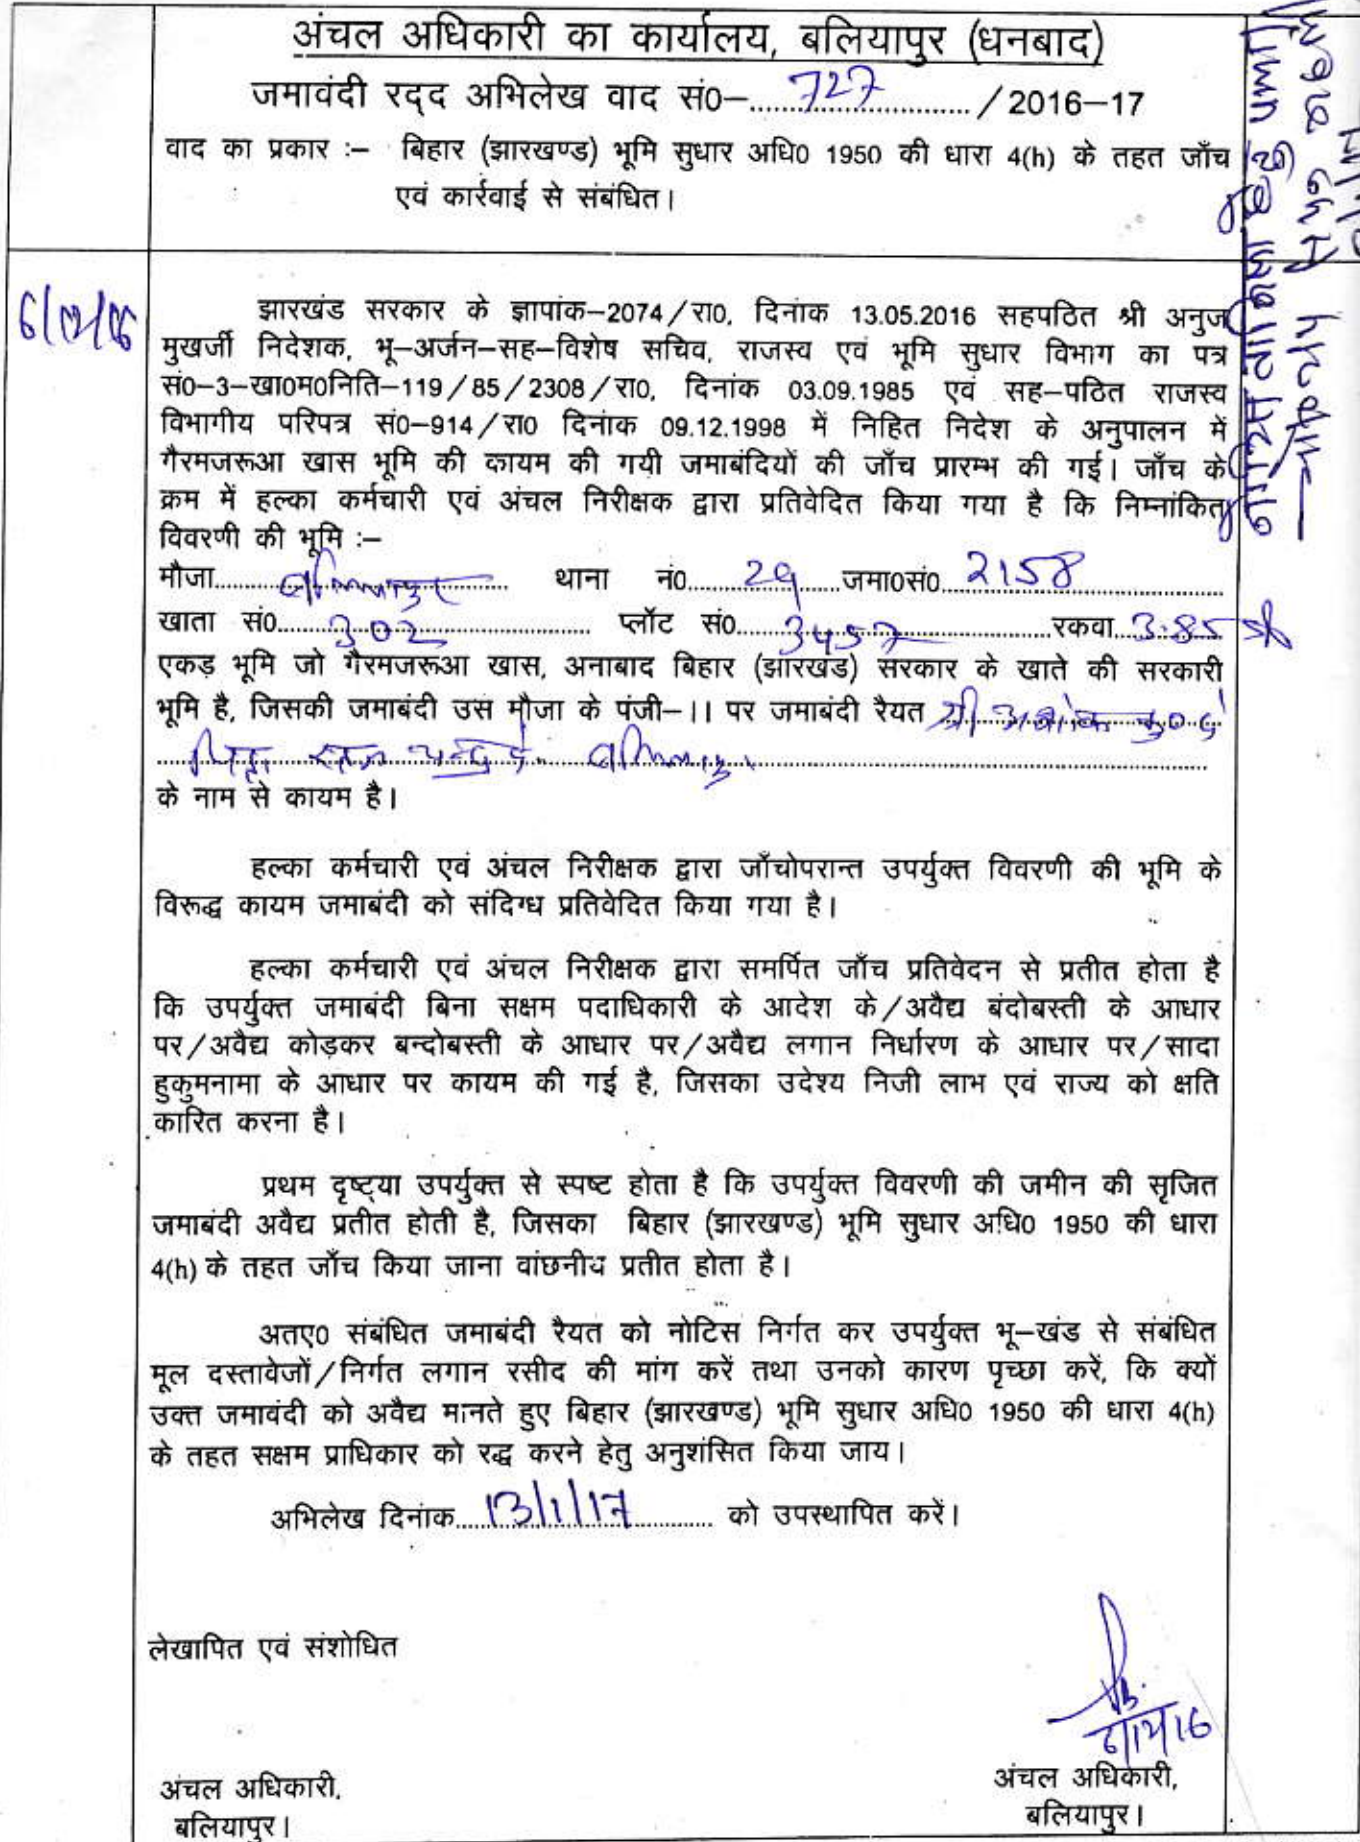 अंचल अधिकारी का कार्यालय, बलियापुर (धनबाद)
जमावंदी रद्द अभिलेख वाद सं0–727/2016–17
वाद का प्रकार :– बिहार (झारखण्ड) भूमि सुधार अधि0 1950 की धारा 4(h) के तहत जाँच
एवं कार्रवाई से संबंधित।
झारखंड सरकार के ज्ञापांक–2074/रा0, दिनांक 13.05.2016 सहपठित श्री अनुज
मुखर्जी निदेशक, भू–अर्जन–सह–विशेष सचिव, राजस्व एवं भूमि सुधार विभाग का पत्र
सं0–3–खा0म0निति–119/85/2308/रा0, दिनांक 03.09.1985 एवं सह–पठित राजस्व
विभागीय परिपत्र सं0–914/रा0 दिनांक 09.12.1998 में निहित निदेश के अनुपालन में
गैरमजरूआ खास भूमि की कायम की गयी जमाबंदियों की जाँच प्रारम्भ की गई। जाँच के
क्रम में हल्का कर्मचारी एवं अंचल निरीक्षक द्वारा प्रतिवेदित किया गया है कि निम्नांकित
विवरणी की भूमि :–
मौजा बलियापुर थाना नं0 29 जमा0सं0 2158
खाता सं0 302 प्लॉट सं0 3457 रकवा 3.85
एकड़ भूमि जो गैरमजरूआ खास, अनाबाद बिहार (झारखंड) सरकार के खाते की सरकारी
भूमि है, जिसकी जमाबंदी उस मौजा के पंजी–।। पर जमाबंदी रैयत श्री अशोक कु0 दे
पिता चन्द्र दे बलियापुर
के नाम से कायम है।
हल्का कर्मचारी एवं अंचल निरीक्षक द्वारा जाँचोपरान्त उपर्युक्त विवरणी की भूमि के
विरूद्ध कायम जमाबंदी को संदिग्ध प्रतिवेदित किया गया है।
हल्का कर्मचारी एवं अंचल निरीक्षक द्वारा समर्पित जाँच प्रतिवेदन से प्रतीत होता है
कि उपर्युक्त जमाबंदी बिना सक्षम पदाधिकारी के आदेश के/अवैद्य बंदोबस्ती के आधार
पर/अवैद्य कोड़कर बन्दोबस्ती के आधार पर/अवैद्य लगान निर्धारण के आधार पर/सादा
हुकुमनामा के आधार पर कायम की गई है, जिसका उदेश्य निजी लाभ एवं राज्य को क्षति
कारित करना है।
प्रथम दृष्ट्या उपर्युक्त से स्पष्ट होता है कि उपर्युक्त विवरणी की जमीन की सृजित
जमाबंदी अवैद्य प्रतीत होती है, जिसका बिहार (झारखण्ड) भूमि सुधार अधि0 1950 की धारा
4(h) के तहत जाँच किया जाना वांछनीय प्रतीत होता है।
अतए0 संबंधित जमाबंदी रैयत को नोटिस निर्गत कर उपर्युक्त भू–खंड से संबंधित
मूल दस्तावेजों/निर्गत लगान रसीद की मांग करें तथा उनको कारण पृच्छा करें, कि क्यों
उक्त जमावंदी को अवैद्य मानते हुए बिहार (झारखण्ड) भूमि सुधार अधि0 1950 की धारा 4(h)
के तहत सक्षम प्राधिकार को रद्ध करने हेतु अनुशंसित किया जाय।
अभिलेख दिनांक 13/1/17 को उपस्थापित करें।
लेखापित एवं संशोधित
अंचल अधिकारी,
बलियापुर।
अंचल अधिकारी,
बलियापुर।